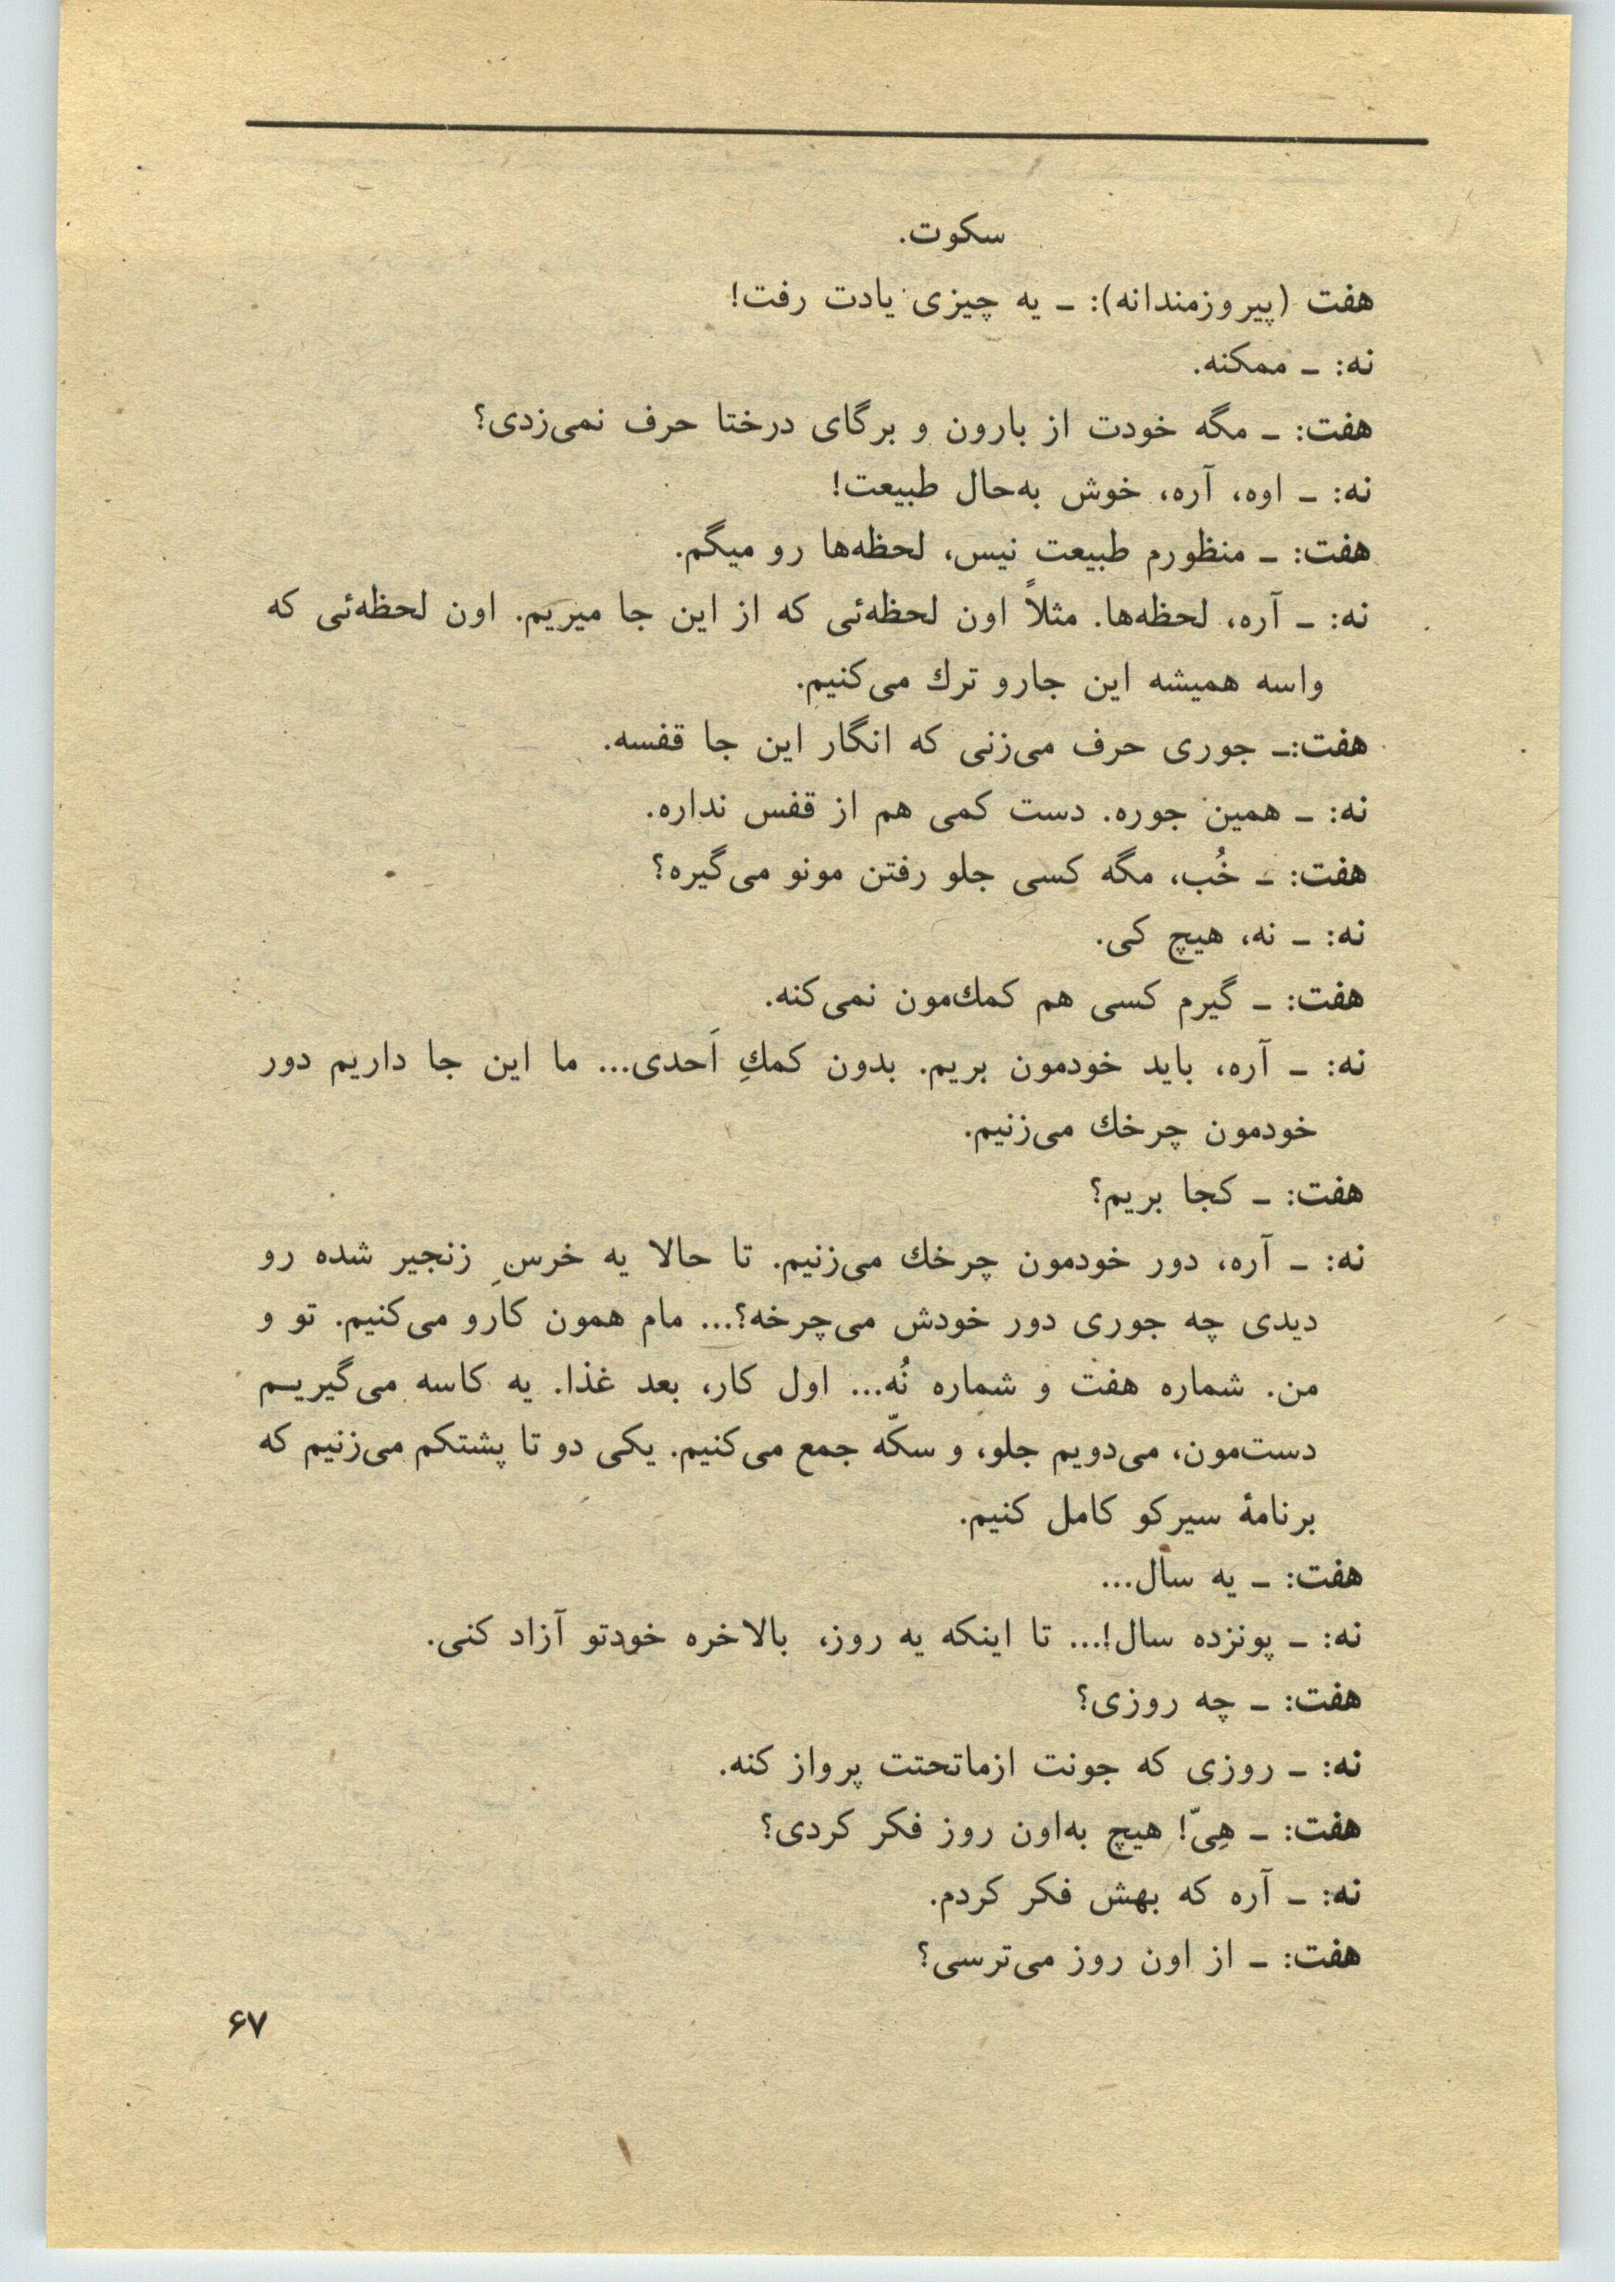 سکوت.
هفت (پیروزمندانه): ـ یه چیزی یادت رفت!
نه: ـ ممکنه.
هفت: ـ مگه خودت از بارون و برگای درختا حرف نمی‌زدی؟
نه: ـ اوه، آره، خوش به‌حال طبیعت!
هفت: ـ منظورم طبیعت نیس، لحظه‌ها رو میگم.
نه: ـ آره، لحظه‌ها. مثلاً اون لحظه‌ئی که از این جا میریم. اون لحظه‌ئی که
واسه همیشه این جارو ترك می‌کنیم.
هفت:ـ جوری حرف می‌زنی که انگار این جا قفسه.
نه: ـ همین جوره. دست کمی هم از قفس نداره.
هفت: ـ خُب، مگه کسی جلو رفتن مونو می‌گیره؟
نه: ـ نه، هیچ کی.
هفت: ـ گیرم کسی هم کمك‌مون نمی‌کنه.
نه: ـ آره، باید خودمون بریم. بدون کمكِ اَحدی... ما این جا داریم دور
خودمون چرخك می‌زنیم.
هفت: ـ کجا بریم؟
نه: ـ آره، دور خودمون چرخك می‌زنیم. تا حالا یه خرسِ زنجیر شده رو
دیدی چه جوری دور خودش می‌چرخه؟... مام همون کارو می‌کنیم. تو و
من. شماره هفت و شماره نُه... اول کار، بعد غذا. یه کاسه می‌گیریـم
دست‌مون، می‌دویم جلو، و سکّه جمع می‌کنیم. یکی دو تا پشتکم می‌زنیم که
برنامهٔ سیرکو کامل کنیم.
هفت: ـ یه سال...
نه: ـ پونزده سال!... تا اینکه یه روز، بالاخره خودتو آزاد کنی.
هفت: ـ چه روزی؟
نه: ـ روزی که جونت ازماتحتت پرواز کنه.
هفت: ـ هِیّ! هیچ به‌اون روز فکر کردی؟
نه: ـ آره که بهش فکر کردم.
هفت: ـ از اون روز می‌ترسی؟
۶۷